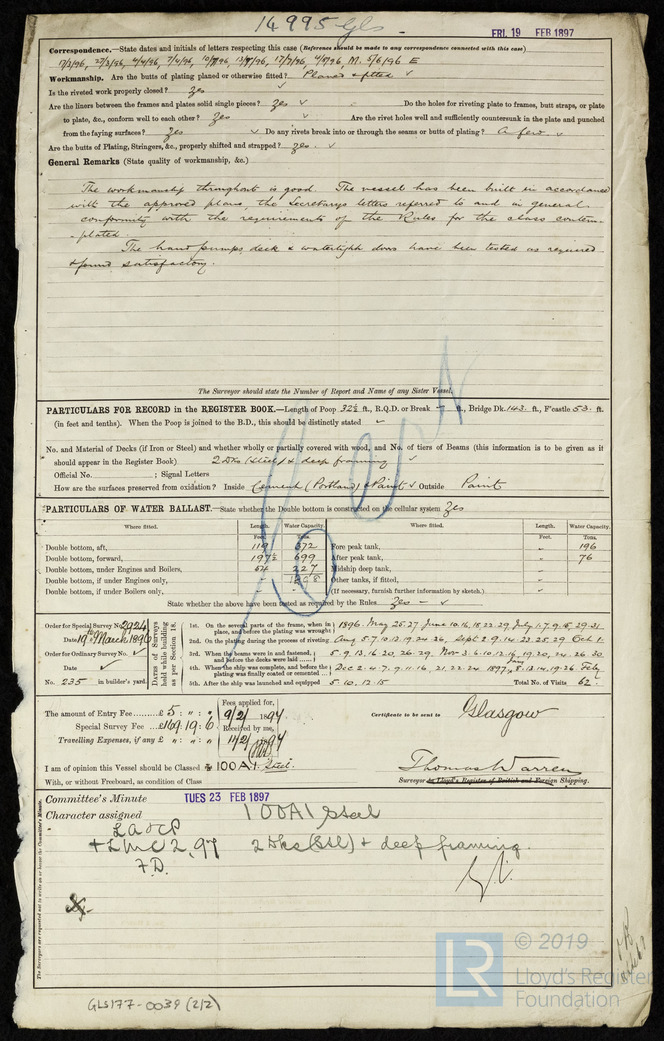 14995 Gls
FRI. 19 FEB 1897
Correspondence.—State dates and initials of letters respecting this case (Reference should be made to any correspondence connected with this case)
M. 5/6/96 E
Workmanship. Are the butts of plating planed or otherwise fitted? Planed & fitted ✓
Is the riveted work properly closed? Yes ✓
Are the liners between the frames and plates solid single pieces? Yes ✓ Do the holes for riveting plate to frames, butt straps, or plate
to plate, &c., conform well to each other? Yes ✓ Are the rivet holes well and sufficiently countersunk in the plate and punched
from the faying surfaces? Yes ✓ Do any rivets break into or through the seams or butts of plating? A few. ✓
Are the butts of Plating, Stringers, &c., properly shifted and strapped? Yes. ✓
General Remarks (State quality of workmanship, &c.)
The workmanship throughout is good. The vessel has been built in accordance
with the approved plans, the Secretarys letters referred to and in general
conformity with the requirements of the Rules for the class contem-
-plated.
The hand pumps, deck & watertight doors have been tested as required
& found satisfactory.
The Surveyor should state the Number of Report and Name of any Sister Vessel.
PARTICULARS FOR RECORD in the REGISTER BOOK.—Length of Poop 32½ ft., R.Q.D. or Break ft., Bridge Dk. 143 ft., F'castle 53 ft.
(in feet and tenths). When the Poop is joined to the B.D., this should be distinctly stated ✓
No. and Material of Decks (if Iron or Steel) and whether wholly or partially covered with wood, and No. of tiers of Beams (this information is to be given as it
should appear in the Register Book) 2 Dks (steel) & deep framing ✓
Official No. ; Signal Letters
How are the surfaces preserved from oxidation? Inside Cement (Portland) & Paint ✓ Outside Paint
PARTICULARS OF WATER BALLAST.—State whether the Double Bottom is constructed on the cellular system Yes
Where fitted. Length. Water Capacity. Where fitted. Length. Water Capacity.
Feet. Tons. Feet. Tons.
Double bottom, aft, 119 372 Fore peak tank, 196
Double bottom, forward, 197½ 699 After peak tank, 76
Double bottom, under Engines and Boilers, 54 227 Midship deep tank,
Double bottom, if under Engines only, Other tanks, if fitted,
Double bottom, if under Boilers only, (If necessary, furnish further information by sketch.)
State whether the above have been tested as required by the Rules Yes ✓
Order for Special Survey No. 2924
Date 19th March 1896
Order for Ordinary Survey No. ✓
Date ✓
No. 235 in builder's yard.
Dates of Surveys held while building as per Section 18.
1st. On the several parts of the frame, when in place, and before the plating was wrought 1896. May 25. 27 June 10. 16. 18. 22. 29. July 1. 7. 9. 15. 29. 31
2nd. On the plating during the process of riveting Aug 5. 7. 10. 12. 19. 24. 26, Sept 2. 9. 14. 23. 25. 29. Oct 1.
3rd. When the beams were in and fastened, and before the decks were laid 5. 9. 13. 16. 20. 26. 29. Nov 3. 6. 10. 12. 16. 19. 20. 24. 26. 30
4th. When the ship was complete, and before the plating was finally coated or cemented Dec 2. 4. 7. 9. 11. 16. 21. 22. 24. 1897 Jan 5. 13. 14. 19. 26. Feby
5th. After the ship was launched and equipped 5. 10. 12. 15 Total No. of Visits 62.
The amount of Entry Fee £5 : " : "
Special Survey Fee £169 : 19 : 6
Travelling Expenses, if any £ " : " : "
Fees applied for, 9/2/ 1897
Received by me, 11/2/ 1897
Certificate to be sent to Glasgow
I am of opinion this Vessel should be Classed + 100 A1. Steel.
With, or without Freeboard, as condition of Class
Thomas Warren
Surveyor to Lloyd's Register of British and Foreign Shipping.
Committee's Minute TUES 23 FEB 1897
Character assigned 100A1 Steel
LA&CP
+ LMC 2,97 2 Dks (Stl) & deep framing.
F.D.
The Surveyors are requested not to write on or below the Committee's Minute.
GLS177-0039 (2/2)
LR
© 2019
Lloyd's Register
Foundation